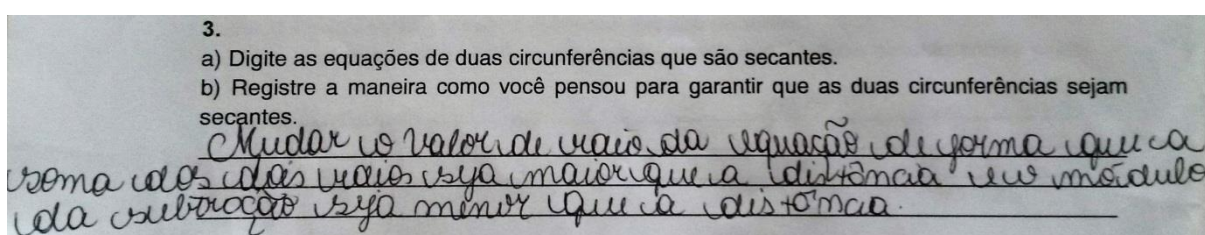 3.
a) Digite as equações de duas circunferências que são secantes.
b) Registre a maneira como você pensou para garantir que as duas circunferências sejam
secantes.
Mudar o valor de raio da equação de forma que a
soma dos dois raios seja maior que a distância e o módulo
da subtração seja menor que a distância.